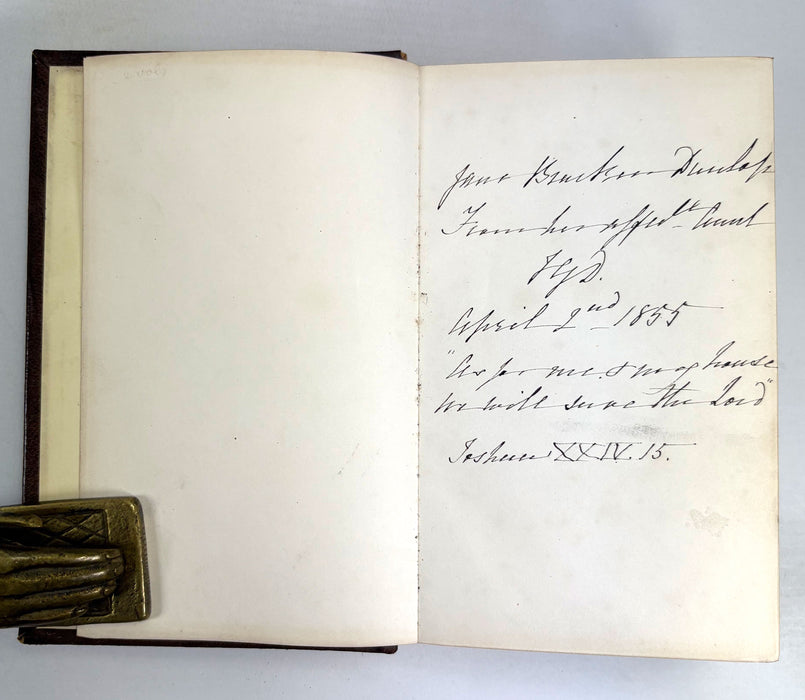 Jane Dunlop
From her affec^te Aunt
April 2nd 1855
"As for me & my house
we will serve the Lord"
Joshua XXIV. 15.